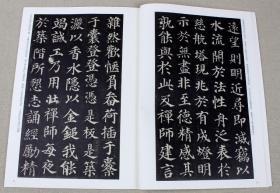 遠望則明近尋即滅竊以
水流開於法性舟泛表於
慈航塔現兆於有成燈明
示於無盡非至德精感其
孰能與於此及禪師建言
雜然歡愜負畚荷插于橐
于囊登登憑憑是板是築
灑以香水隱以金鎚我能
竭誠工乃用壯禪師每夜
於築階所懇志誦經勵精